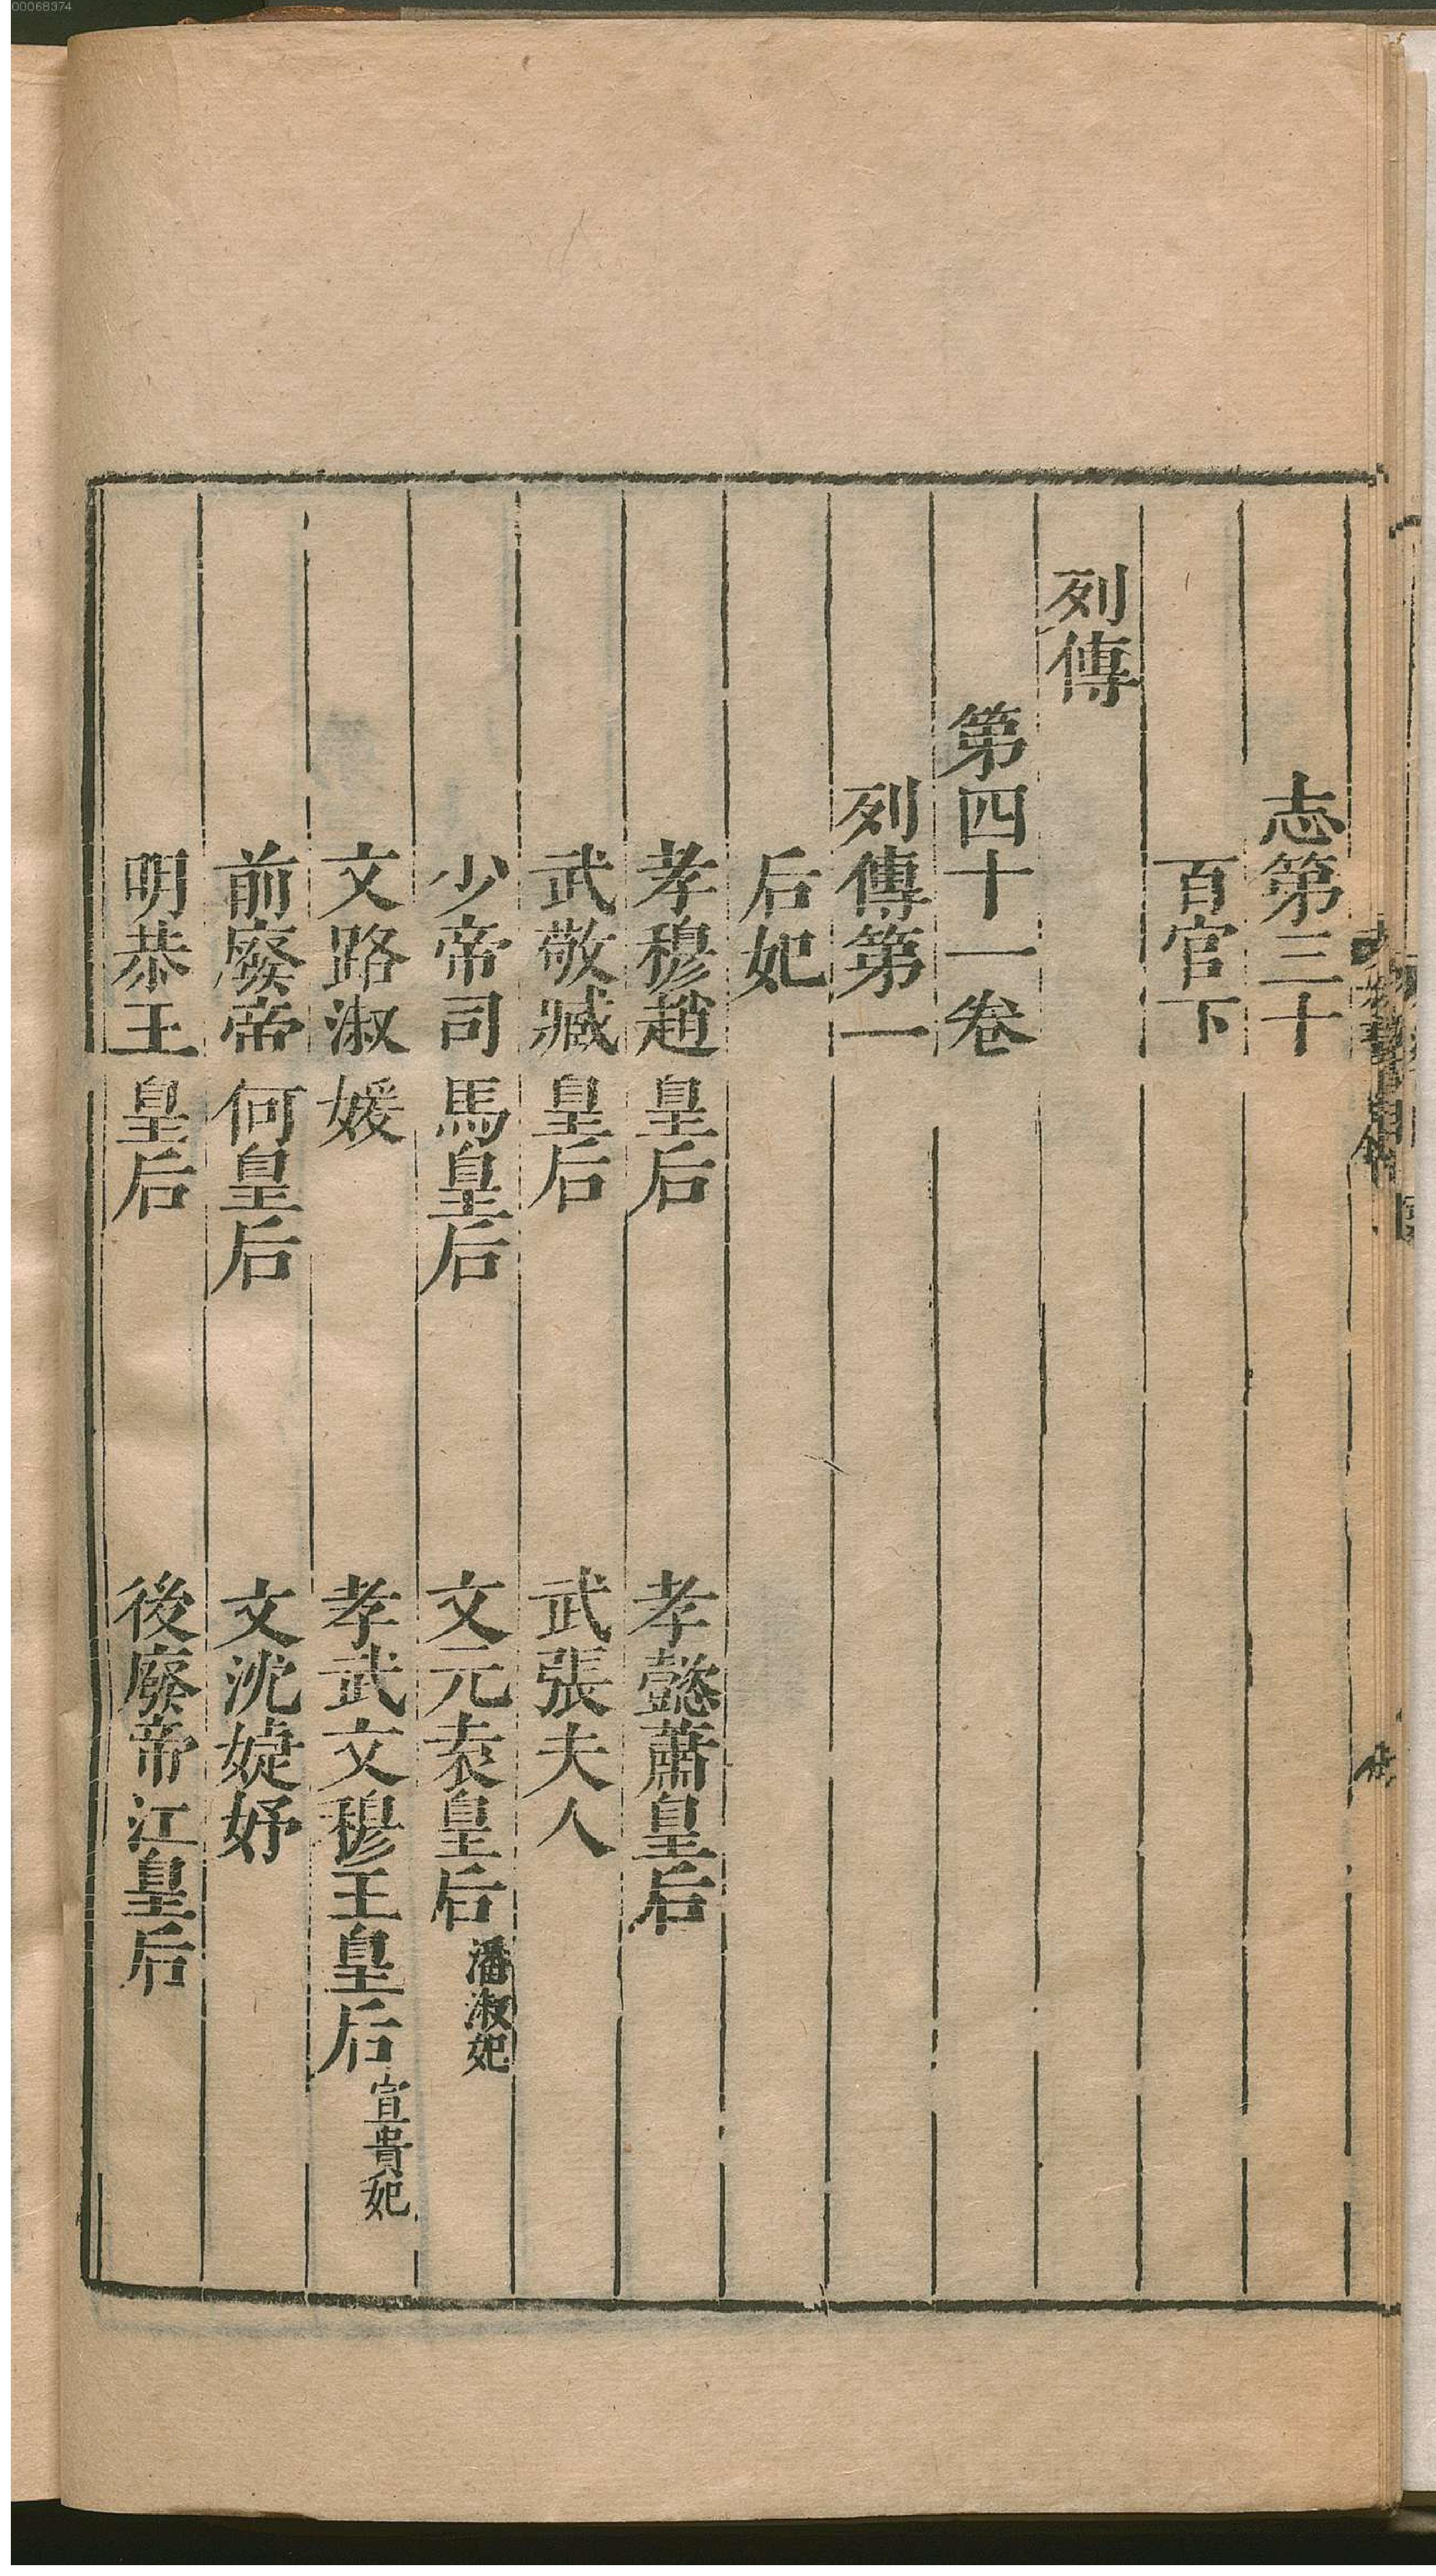 00068374
志第三十
百官下
列傳
第四十一卷
列傳第一
后妃
孝穆趙皇后 孝懿蕭皇后
武敬臧皇后 武張夫人
少帝司馬皇后 文元袁皇后 潘淑妃
文路淑媛 孝武文穆王皇后 宣貴妃
前廢帝何皇后 文沈婕妤
明恭王皇后 後廢帝江皇后